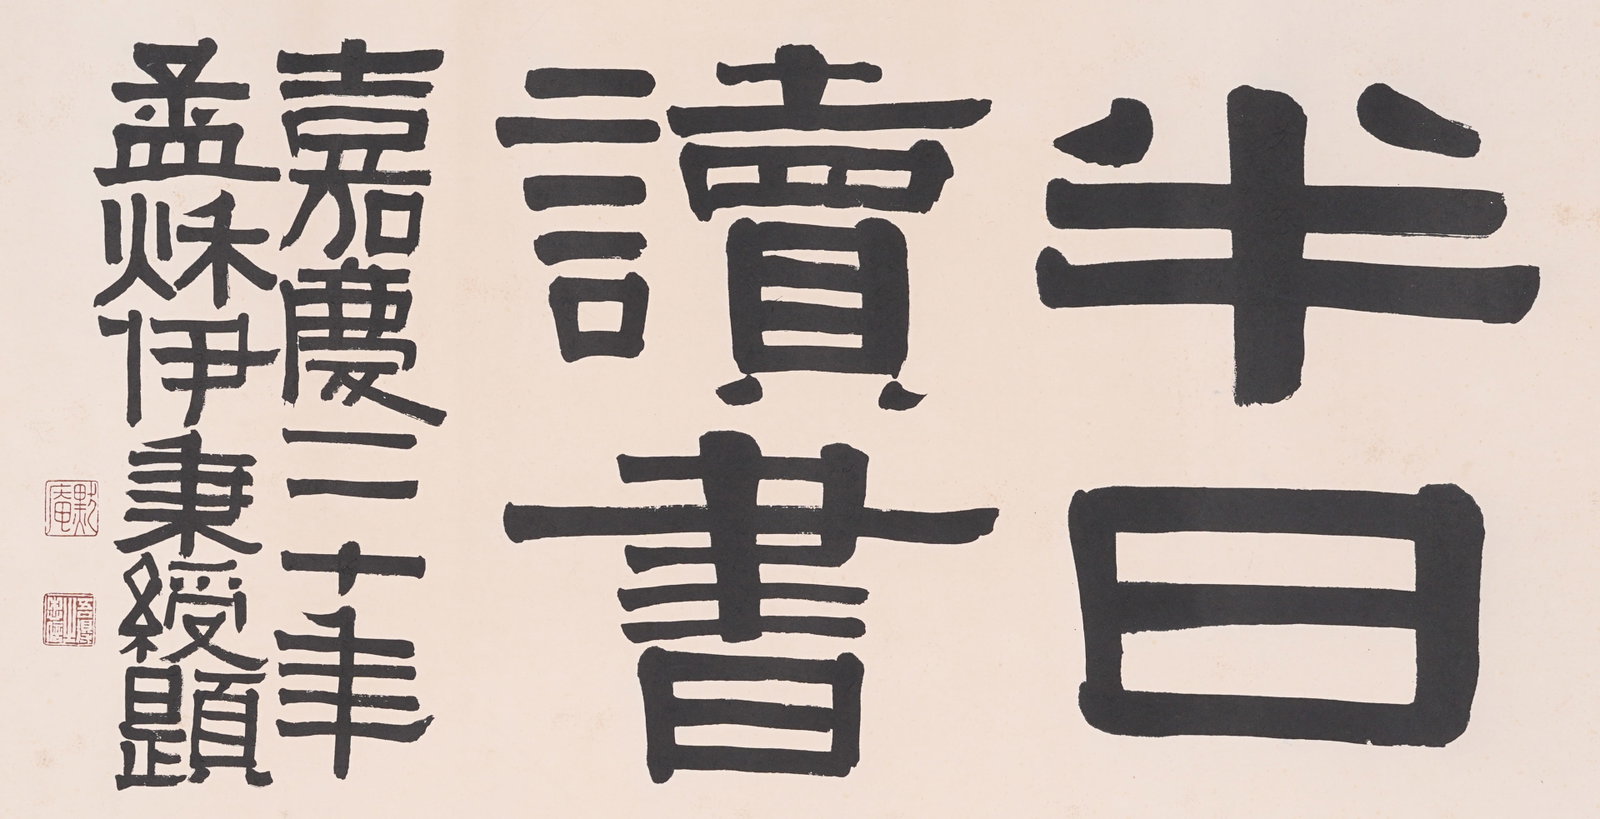 半日
讀書
嘉慶二十年
孟秌伊秉綬題
默庵